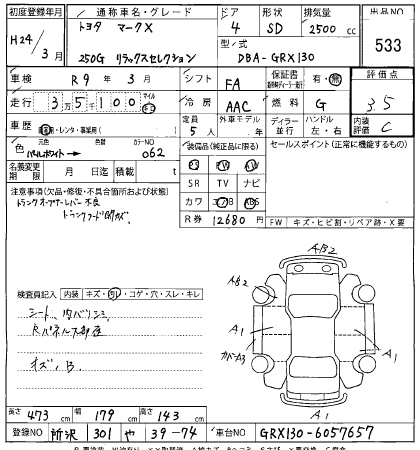 初度登録年月 通称車名・グレード ドア 形状 排気量 出品NO
H24/3月 トヨタ マークX 4 SD 2500 cc 533
250G リラックスセレクション 型式 DBA-GRX130
車検 R9年3月 シフト FA 保証書 有・無 評価点
走行 35100 マイル キロ 冷房 AAC 燃料 G 3.5
車歴 自家用・レンタ・事業用( ) 定員 5人 外車モデル 年 ディーラー 並行 ハンドル 左・右 内装評価 C
色 元色 色替 カラーNO パールホワイト 062 装備品(純正品に限る) セールスポイント(正常に機能するもの)
PS PW AW
名義変更期限 月 日 積載 t SR TV ナビ
注意事項(欠品・修復・不具合箇所および状態) カワ エアB ABS
トランクオープナーレバー不良 R券 12680円
FW キズ・ヒビ割・リペア跡・X要
検査員記入 内装 キズ・汚レ・コゲ・穴・スレ・キレ
シート、内バリシミ
キズ、B
A2 B2
A1
カバーA3
A1
A1
長さ 473 cm 幅 179 cm 高さ 143 cm
登録NO 所沢 301 や 39-74 車台NO GRX130-6057657